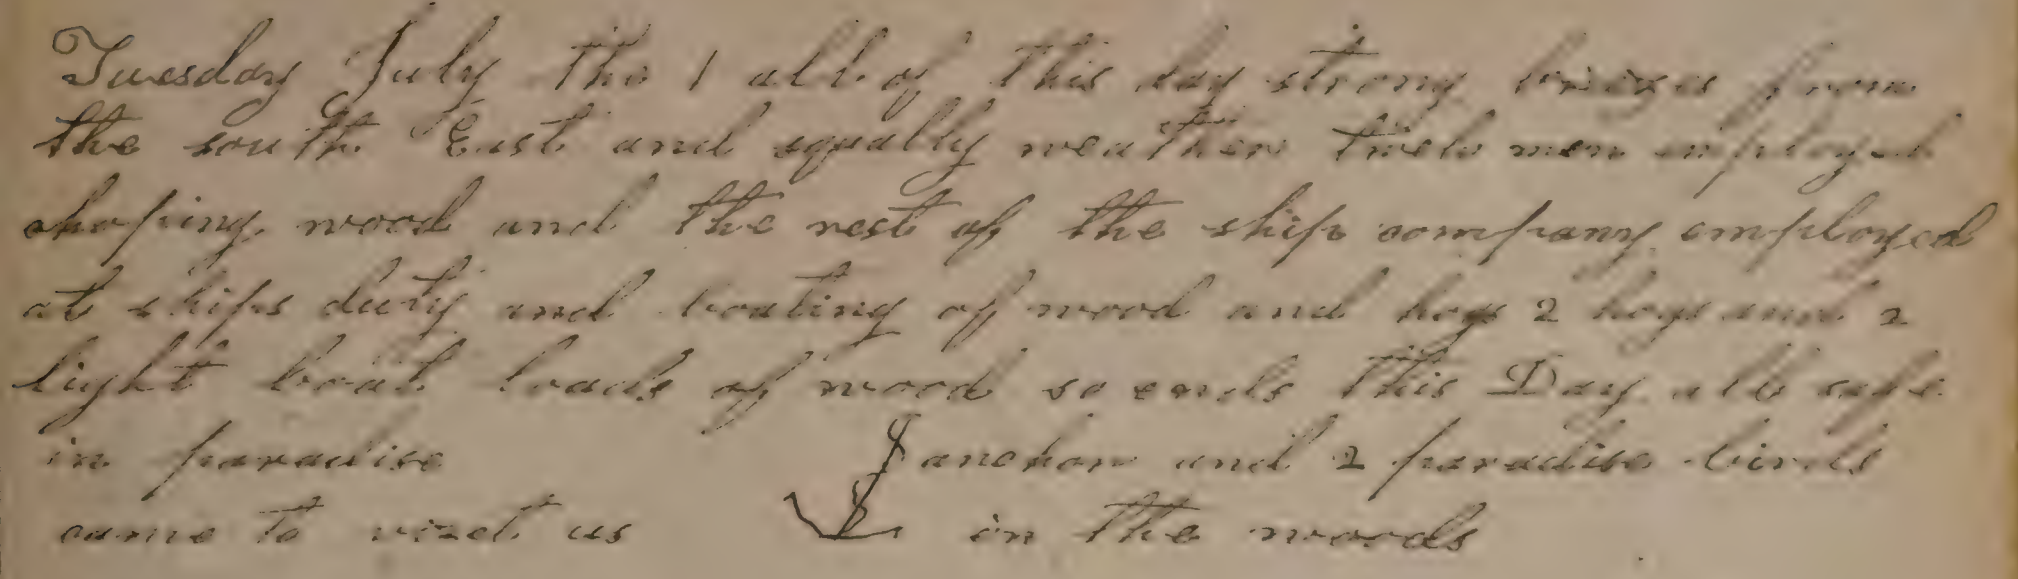 Tuesday July the 1 all of this day strong breezes from
the south East and squally weather twelv men employed
choping wood and the rest of the ship company employed
at ships duty and boating of wood and hogs 2 hogs and 2
light boat loads of wood so ends this Day all safe
in paradise anchor and 2 paradise birds
came to viset us in the woods